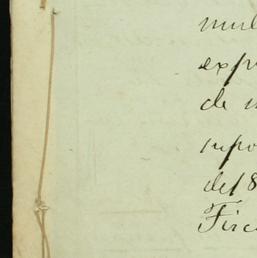 mul
exp
de
supo
del 8
Fisc